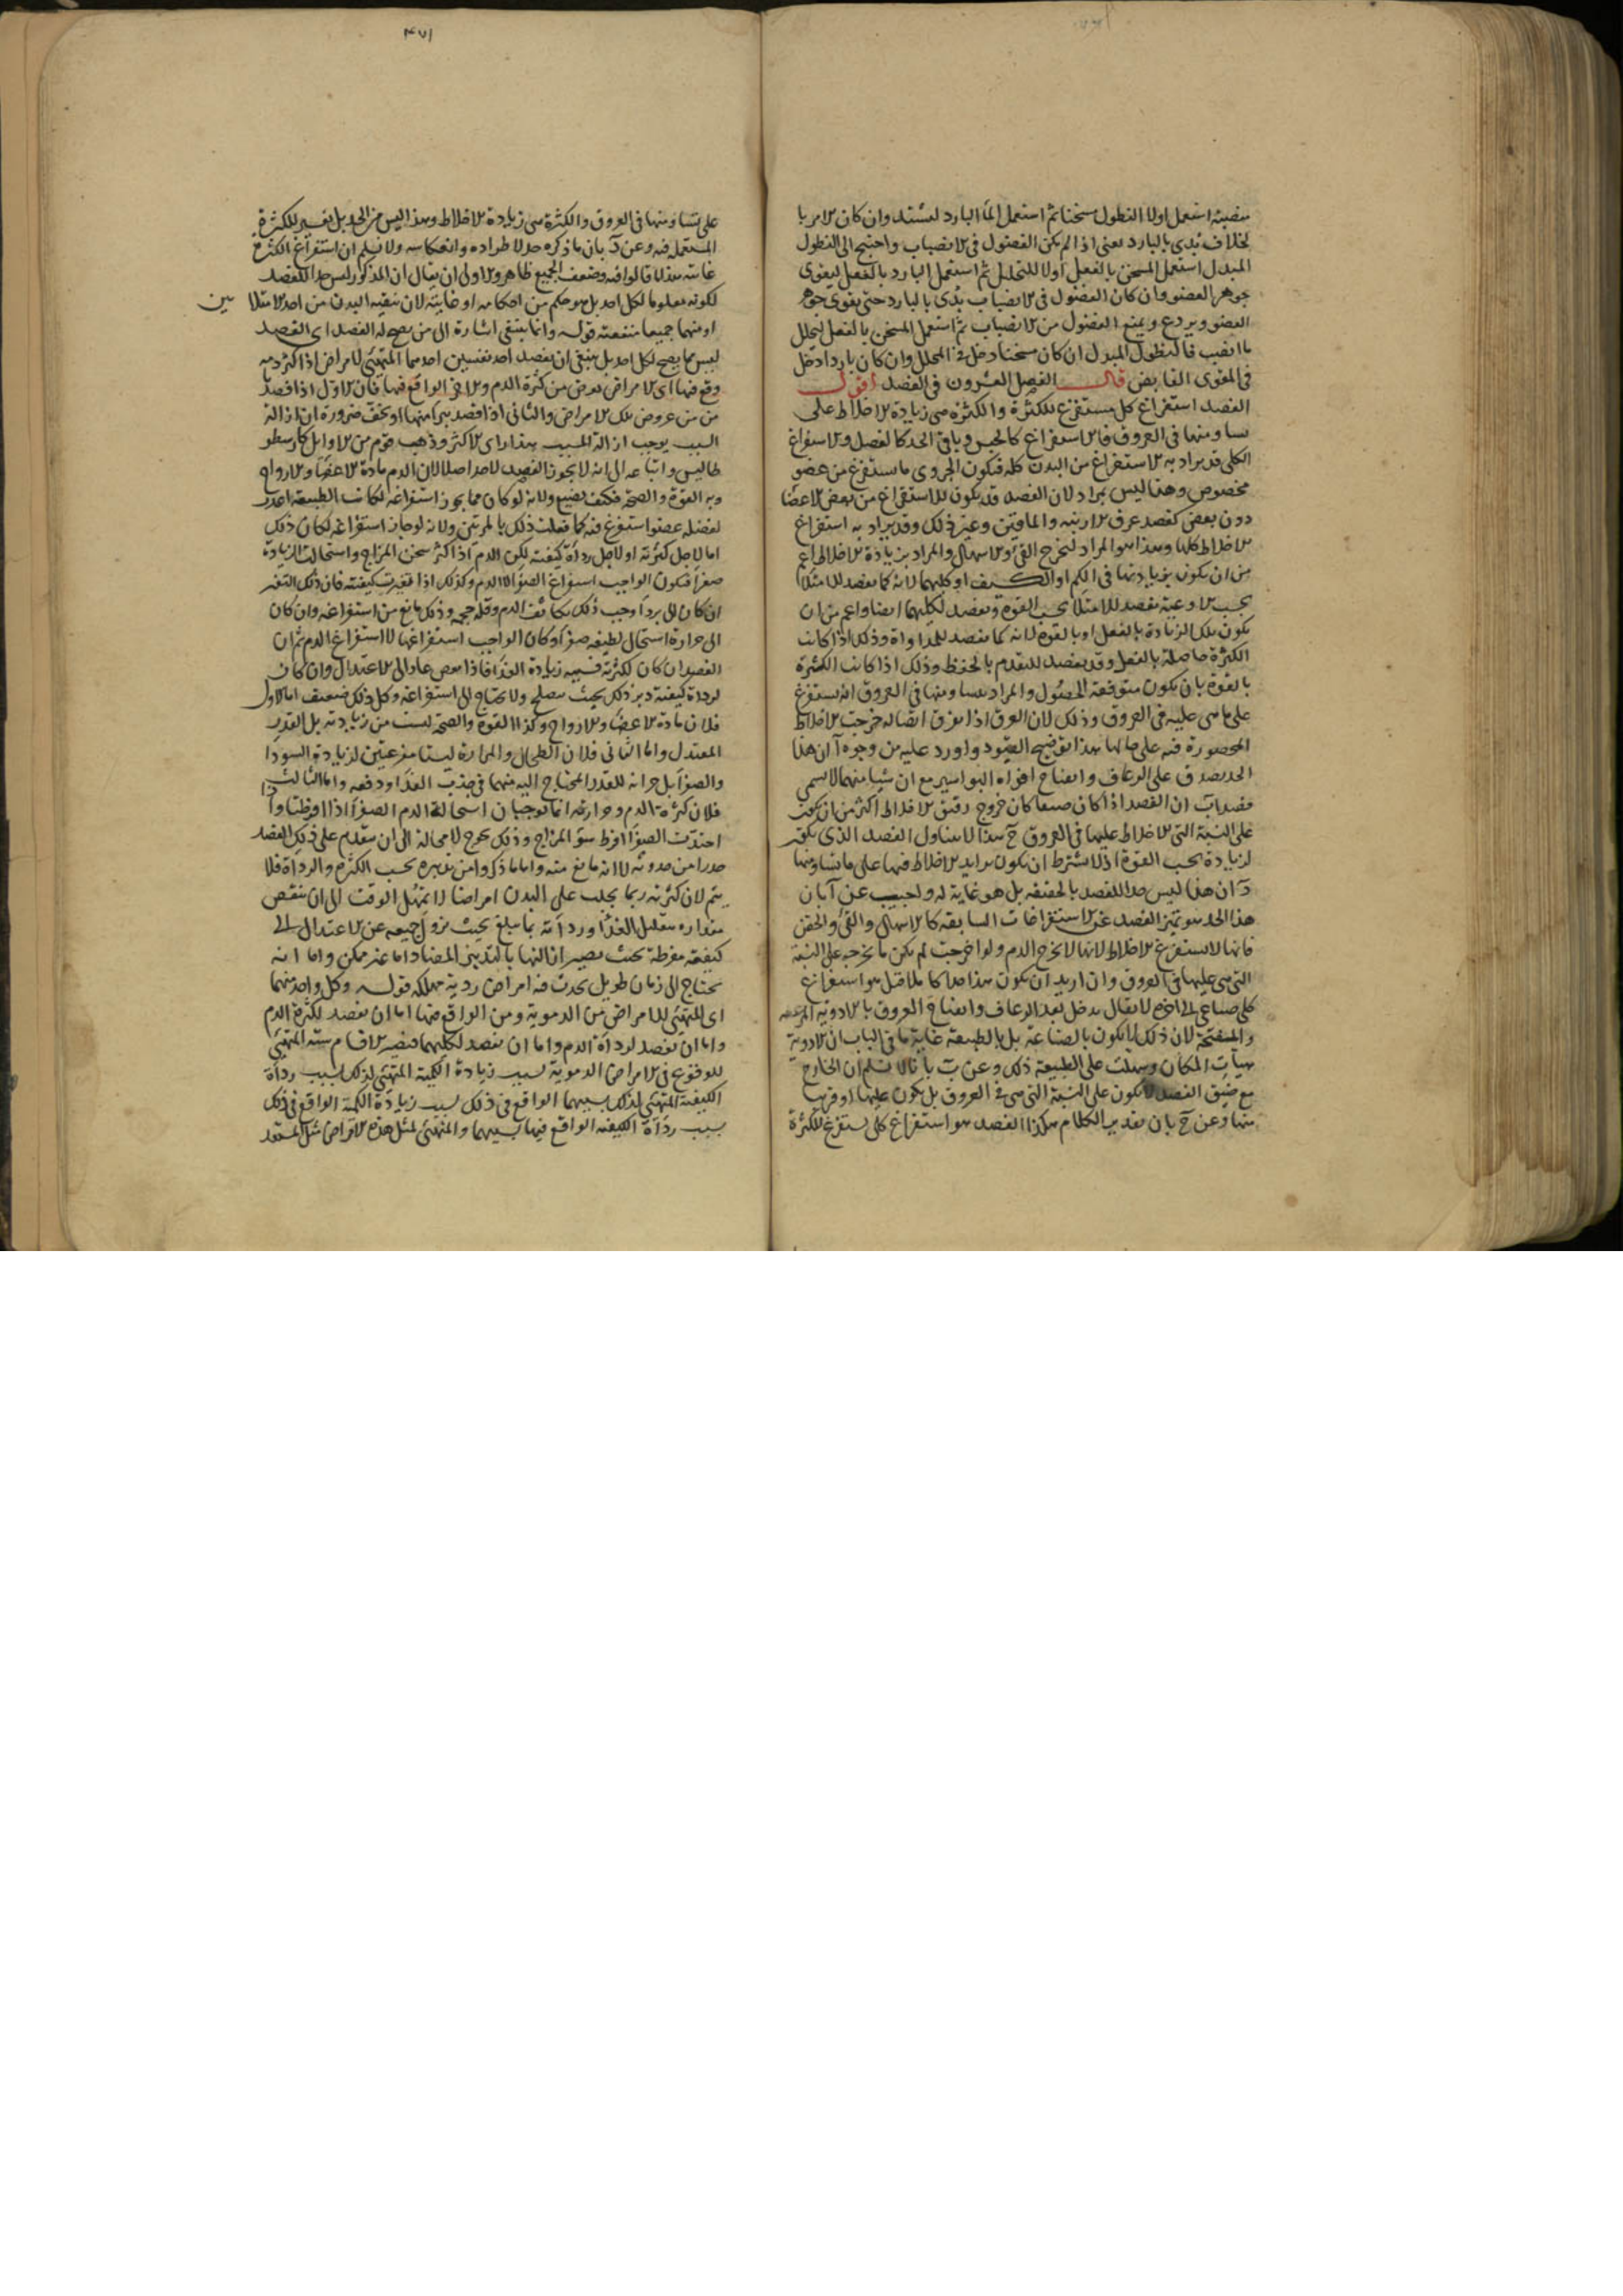 منصبة استعمل اولا النطول مسخنا ثم استعمل الماء البارد ليشتد وان كان الامر با
لخلاف بُدى بالبارد يعنى اذا لم يكن الفضول فى الانصباب واحتيج الى النطول
المبدل استعمل المسخن بالفعل اولا للتحليل ثم استعمل البارد بالفعل ليقوى
جوهر العضو وان كان الفضول فى الانصباب بُدى بالبارد حتى يقوى جوهر
العضو ويردع ويمنع الفضول من الانصباب ثم استعمل المسخن بالفعل ليحلل
ما انصب فالنطول المبدل ان كان مسخنا دخل فى المحلل وان كان باردا دخل
فى المقوى القابض قال الفصل العشرون فى الفصد اقول
الفصد استفراغ كلى يستفرغ للكثرة والكثرة هى زيادة الاخلاط على
تساو منها فى العروق فالاستفراغ كالجنس وباقى الحد كالفصل والاستفراغ
الكلى قد يراد به الاستفراغ من البدن كله فيكون الجزوى ما يستفرغ من عضو
مخصوص وهذا ليس بمراد لان الفصد قد يكون للاستفراغ من بعض الاعضا
دون بعض كفصد عرق الارنبة والماقين وغير ذلك وقد يراد به استفراغ
الاخلاط كلها وهذا هو المراد ليخرج القئ والاسهال والمراد بزيادة الاخلاط اعم
من ان يكون بزيادتها فى الكم او الكيف او كليهما لانه كما يفصد للامتلا
بحسب الاوعية يفصد للامتلا بحسب القوة ويفصد لكليهما ايضا واعم من ان
يكون تلك الزيادة بالفعل او بالقوة لانه كما يفصد للمداواة وذلك اذا كانت
الكثرة حاصلة بالفعل وقد يفصد للتقدم بالحفظ وذلك اذا كانت الكثرة
بالقوة بان يكون متوقعة الحصول والمراد بتساو منها فى العروق انه يستفرغ
على ما هى عليه فى العروق وذلك لان العرق اذا تفرق اتصاله خرجت الاخلاط
المحصورة فيه على حالها هذا توضيح القيود واورد عليه من وجوه آ ان هذا
الحد يصدق على الرعاف وانفتاح افواه البواسير مع ان شيا منهما لا يسمى
فصدا ب ان الفصد اذا كان ضيقا كان خروج رقيق الاخلاط اكثر من ان يكون
على النسبة التى الاخلاط عليها فى العروق ج هذا لا يتناول الفصد الذى يكون
لزيادة بحسب القوة اذ لا يشترط ان يكون تزايد الاخلاط فيها على ما تساو منها
د ان هذا ليس حدا للفصد بالحقيقة بل هو غاية له واجيب عن آ بان
هذا الحد هو تمييز الفصد عن الاستفراغات السابقه كالاسهال والقئ والحقن
فانها لا تستفرغ الاخلاط لانها لا يخرج الدم ولو اخرجت لم يكن ما يخرجه على النسبة
التى هى عليها فى العروق وان اريد ان يكون هذا حدا كاملا قيل هو استفراغ
كلى صناعى الى اخره لا يقال يدخل بعد الرعاف وانفتاح العروق بالادوية
والمفتحة لان ذلك لا يكون بالصناعة بل بالطبيعة غاية ما فى الباب ان الادوية
هيأت المكان وسهلت على الطبيعة ذلك وعن ب بانا لا نسلم ان الخارج
مع ضيق الفصد لا يكون على النسبة التى هى فى العروق بل يكون عليها او قريبا
منها وعن ج بان تقدير الكلام هكذا الفصد هو استفراغ كلى يستفرغ للكثرة
٤٧١
على تساو منها فى العروق والكثرة هى زيادة الاخلاط وهذا ليس من الحد بل تفسير للكثرة
المستعملة فيه وعن د بان ما ذكره حد لاطراده وانعكاسه ولا نسلم ان استفراغ الكثرة
غايته هذا ما قالوا فيه وضعف الجميع ظاهر والاولى ان يقال ان المذكور ليس حدا للفصد
لكونه معلوما لكل احد بل هو حكم من احكامه او غايته لان تنقية البدن من احد الامتلا ين
او منهما جميعا منفعته قوله وانما ينبغى اشارة الى من يصح له الفصد اى الفصد
ليس مما يصح لكل احد بل ينبغى ان يفصد احد نفسين احدهما المتهيئ لامراض اذا كثر دمه
وقع فيها اى الامراض تعرض من كثرة الدم والاخر الواقع فيها فان الاول اذا فصد
من من عروض تلك الامراض والثانى اذا فصد برئ منها او تخفف ضرورة ان ازالة
السبب يوجب ازالة المسبب هذا راى الاكثر وذهب قوم من الاوايل كارسطو
طاليس واتباعه الى انه لا يجوز الفصد لاحد اصلا لان الدم مادة الاعضا والارواح
وبه القوة والصحة فكيف يضيع ولانه لو كان مما يجوز استفراغه لكانت الطبيعة اعدت
لفضله عضوا يستفرغ فيه كما فعلت ذلك بالمرتين ولانه لو جاز استفراغه لكان ذلك
اما لاجل كثرته او لاجل رداة كيفيته لكن الدم اذا كثر سخن المزاج واستحالت الزيادة
صفرا فيكون الواجب استفراغ الصفرا لا الدم وكذلك اذا تغيرت كيفيته فان ذلك التغير
ان كان الى برد اوجب ذلك تكاثف الدم وقلة حجمه وذلك مانع من استفراغه وان كان
الى حرارة استحال لطيفه صفرا وكان الواجب استفراغها لا استفراغ الدم ثم ان
الفصد ان كان لكثرته فسببه زيادة الغذا فاذا نقص عاد الى الاعتدال وان كان
لرداة كيفيته دبر ذلك بحيث يصلح ولا يحتاج الى استفراغه وكل ذلك ضعيف اما الاول
فلان مادة الاعضا والارواح وكذا القوة والصحة ليست من زيادته بل القدر
المعتدل واما الثانى فلان الطحال والمرارة ليستا مفرغتين لزيادة السودا
والصفرا بل خزانة للقدر المحتاج اليه منهما فى جذب الغذا ودفعه واما الثالث
فلان كثرة الدم وحرارته انما توجبان استحالة الدم الصفرا اذا افرطتا واذا
احتدت الصفرا افرط سوء المزاج وذلك يحوج لا محالة الى ان يتقدم على ذلك الفصد
حذرا من حدوثه لا انه مانع منه واما ما ذكروا من تدبيره بحسب الكثرة والرداة فلا
يتم لان كثرته ربما يجلب على البدن امراضا لا تمهل الوقت الى ان ينقص
مقداره بتقليل الغذا ورداته بما يبلغ بحيث يزول جميعه عن الاعتدال الى
كيفية مفرطة بحيث يصير انالتها بالتدبير المضاد اما غير ممكن واما انه
يحتاج الى زمان طويل يحدث فيه امراض ردية مهلكة قوله وكل واحد منهما
اى المتهيئ للامراض من الدموية ومن الواقع فيها اما ان يفصد لكثرة الدم
واما ان يفصد لرداة الدم واما ان يفصد لكليهما فيصير الاقسام ستة المتهيئ
للوقوع فى الامراض الدموية بسبب زيادة الكمية المتهيئ لذلك بسبب رداة
الكيفية المتهيئ لذلك بسببهما الواقع فى ذلك بسبب زيادة الكمية الواقع فى ذلك
بسبب رداة الكيفية الواقع فيها بسببهما والمتهيئ لمثل هذه الامراض مثل المستعد